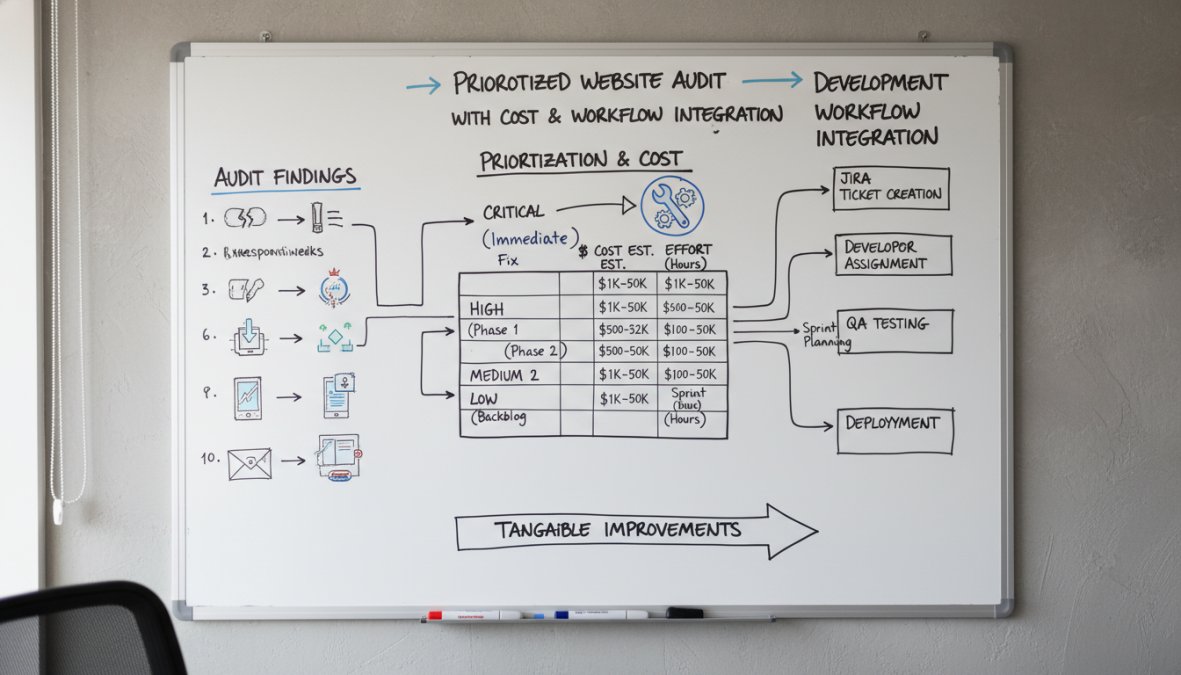 PRIOROTIZED WEBSITE AUDIT
WITH COST & WORKFLOW INTEGRATION
DEVELOPMENT
WORKFLOW
INTEGRATION
AUDIT FINDINGS
1.
2.
3.
6.
9.
10.
PRIORTIZATION & COST
CRITICAL
(Immediate)
Fix
$ COST EST. EFFORT
EST. (Hours)
$1K-50K $1K-50K
HIGH $1K-50K $500-50K
(Phase 1 $500-32K $100-50K
(Phase 2) $500-50K $100-50K
MEDIUM 2 $1K-50K $100-50K
LOW $1K-50K Sprint
(Backblog (Hours)
JIRA
TICKET CREATION
DEVELOPOR
ASSIGNMENT
Sprint
Planning
QA TESTING
DEPLOYYMENT
TANGAIBLE IMPROVEMENTS